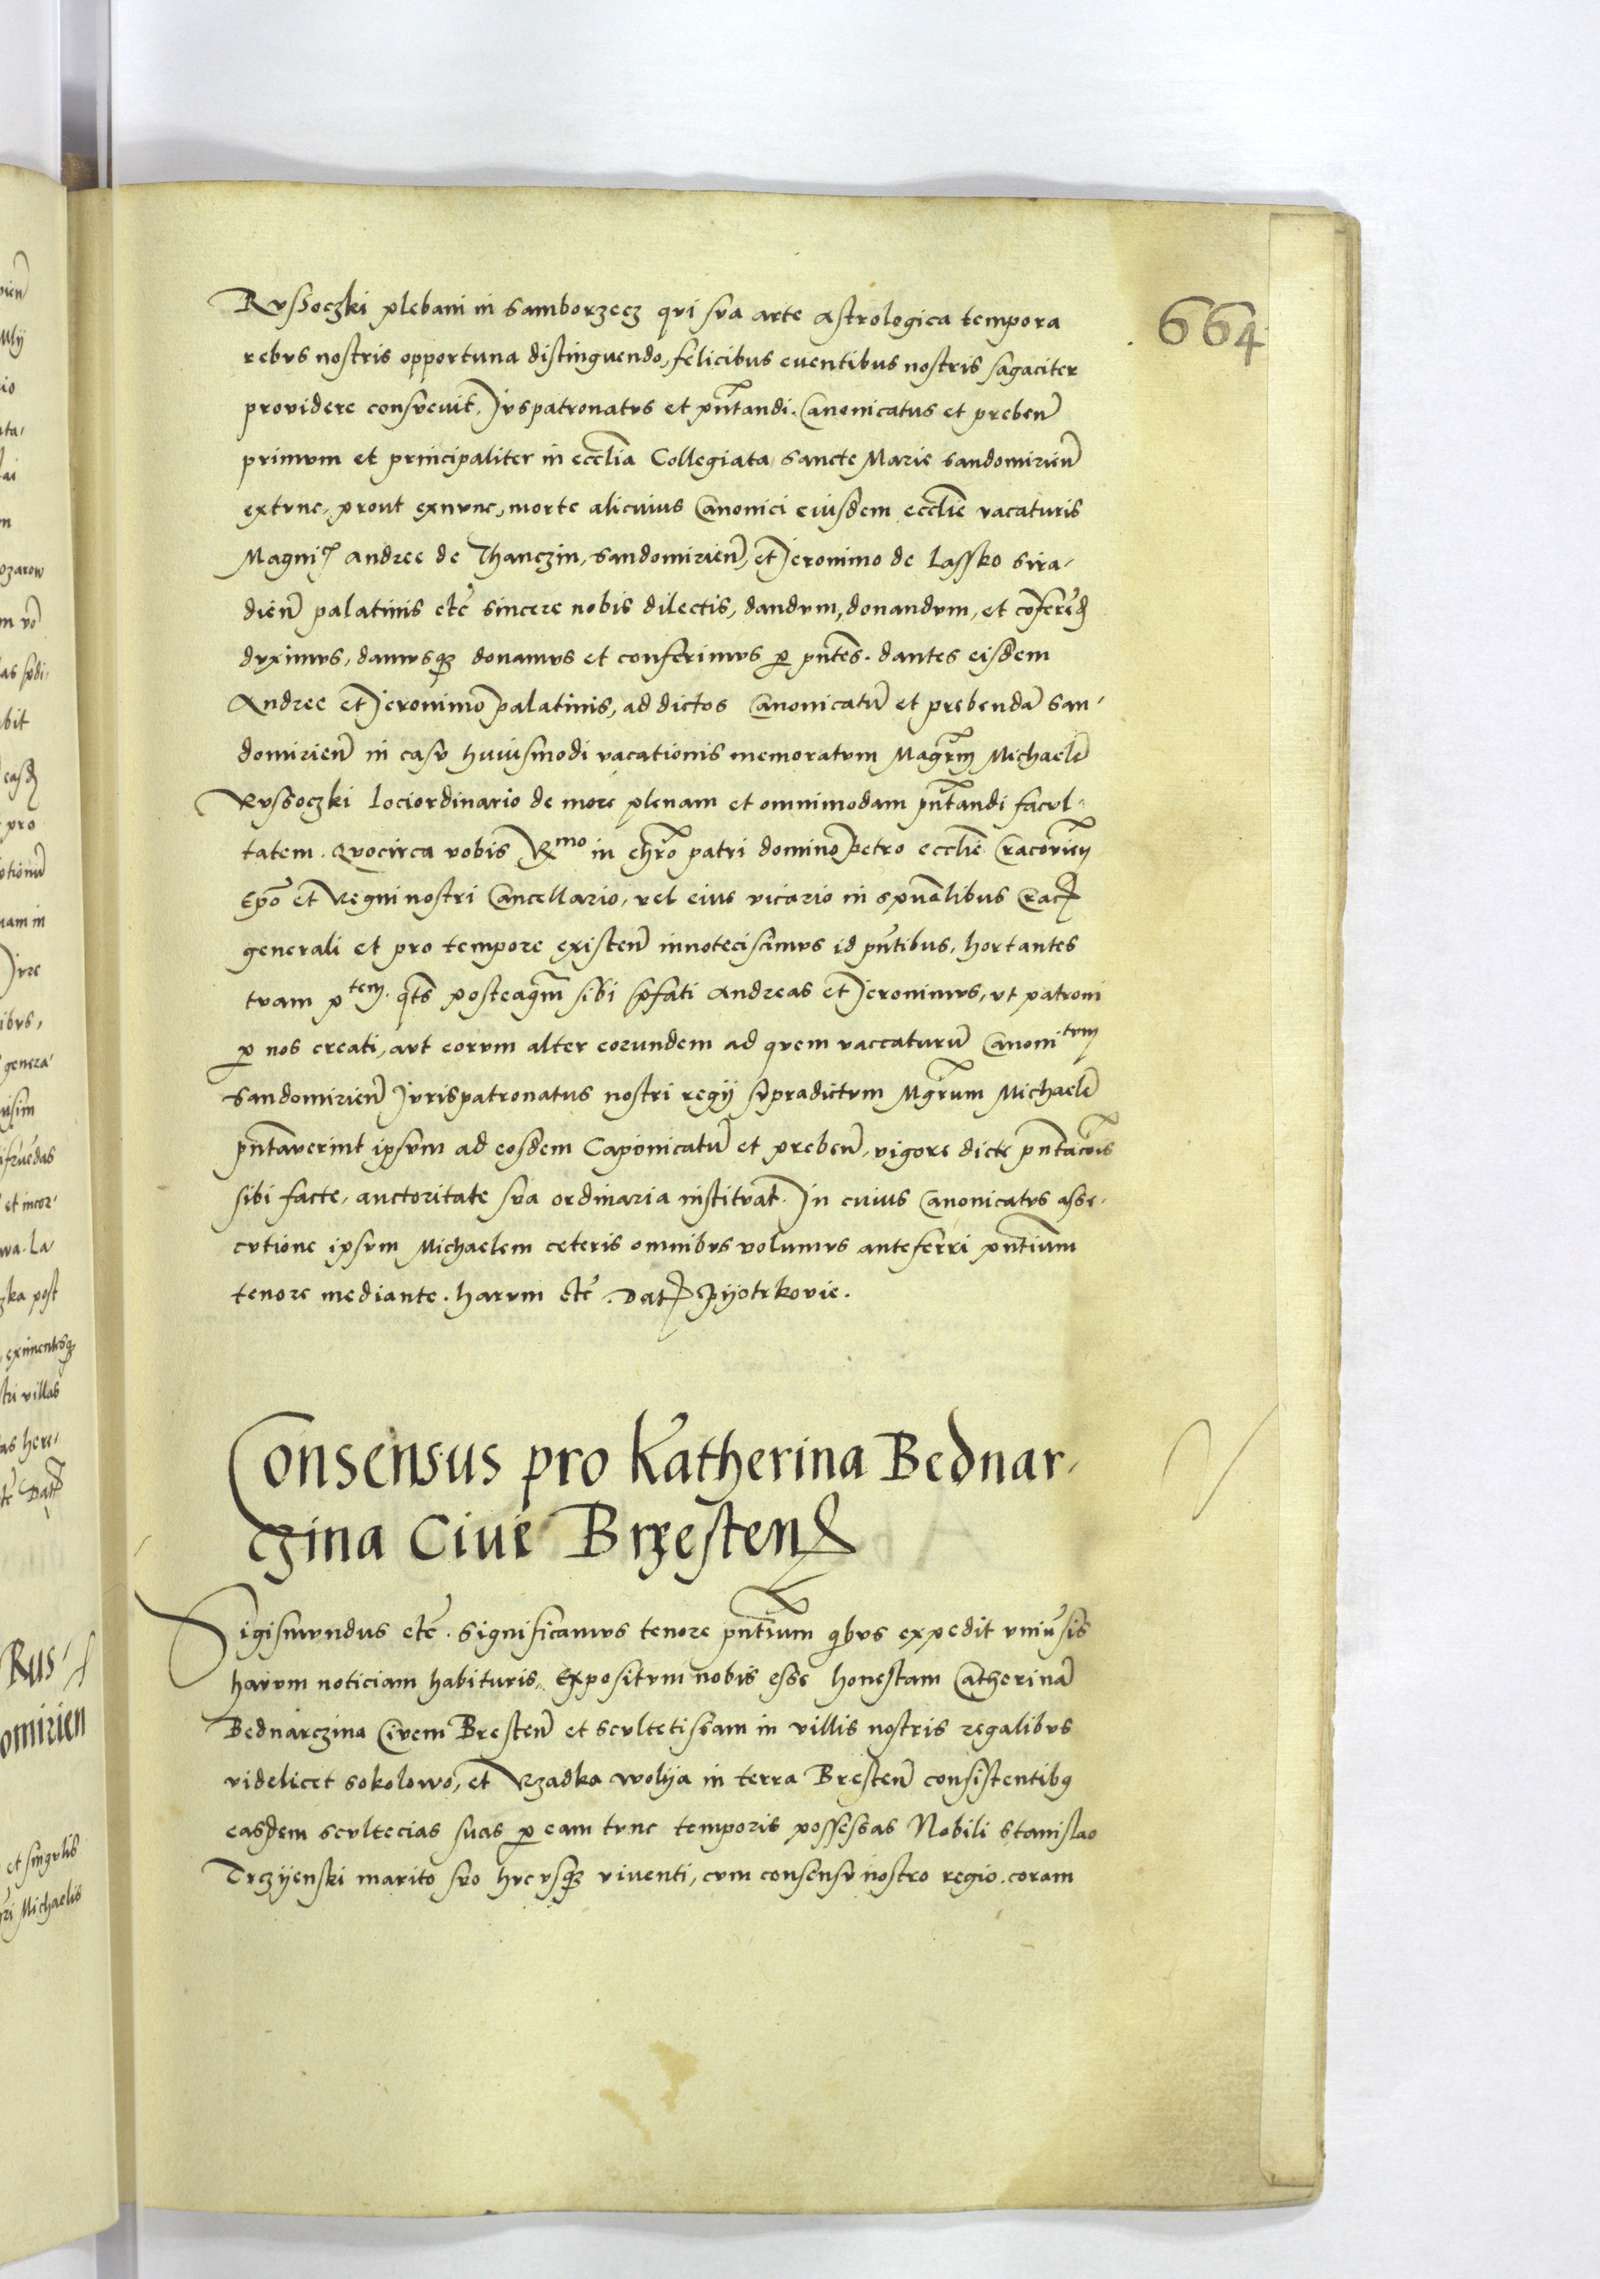 664
Rvssoczki plebani in Samborzecz qvi sva arte Astrologica tempora
rebvs nostris opportuna distinguendo, felicibus euentibus nostris sagaciter
prouidere consveuit, Jvspatronatvs et pn̄tandi. Canonicatus et preben̄
primvm et principaliter in eccl̄ia Collegiata Sancte Marie Sandomirien̄
extvnc, prout exnvnc, morte alicuius Canonici eiusdem eccl̄ie vacaturis
Magnif Andree de Thanczin, Sandomirien̄, et Jeronimo de Lassko Sira-
dien̄ palatinis etc̄ sincere nobis dilectis, dandvm, donandvm, et cōferēd
dvximvs, damvsqz donamvs et conferimvs p pn̄tes. dantes eisdem
Andree et Jeronimo palatinis, ad dictos Canonicatū et prebendā San-
domirien̄ in casv huiusmodi vacationis memoratvm Magr̄m Michaelē
Rvssoczki lociordinario de more plenam et omnimodam pn̄tandi facvl-
tatem. Qvocirca vobis R^mo in chr̄o patri domino Petro eccl̄ie Cracovien̄
Ep̄o et Regni nostri Cancellario, vel eius vicario in sp̄ualibus Crac
generali et pro tempore existen̄ innotescimvs id pn̄tibus, hortantes
tvam p^tem. qt̄s posteaqm̄ sibi p̄fati Andreas et Jeronimvs, vt patroni
p nos creati, avt eorvm alter eorundem ad qvem vaccaturū Canoni^tvm
Sandomirien̄ Jvrispatronatus nostri regij svpradictvm Mgr̄um Michaelē
pn̄tauerint ipsvm ad eosdem Caponicatū et preben̄, vigore dictē pn̄tacōis
sibi facte, auctoritate sva ordinaria institvat. In cuius Canonicatvs asse-
cvtione ipsvm Michaelem ceteris omnibvs volumvs anteferri pn̄tium
tenore mediante. Harvm etc̄. Dat Pijotrkovie.
Consensus pro Katherina Bednar-
czina Ciue Brzesten
Sigismvndus etc̄. Significamvs tenore pn̄tium qibvs expedit vniūsis
harvm noticiam habituris, Expositvm nobis esse honestam Catherinā
Bednarczina Civem Bresten̄ et scvltetissam in villis nostris regalibvs
videlicet Sokolowo, et Rzadka wolija in terra Bresten̄ consistentibq
easdem scvltecias suas p eam tvnc temporis possessas Nobili Stanislao
Trczijenski marito svo hvcvsqz viventi, cvm consensv nostro regio. coram